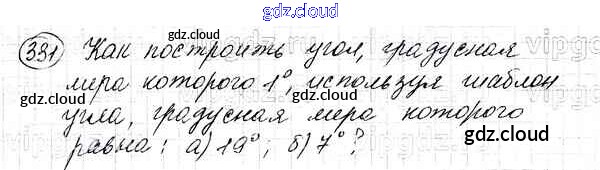 gdz.cloud
331 Как построить угол, градусная
gdz.cloud
мера которого 1°, используя шаблон
gdz.cloud gdz.cloud
угла, градусная мера которого
gdz.cloud
равна: а) 19°; б) 7°?
gdz.cloud